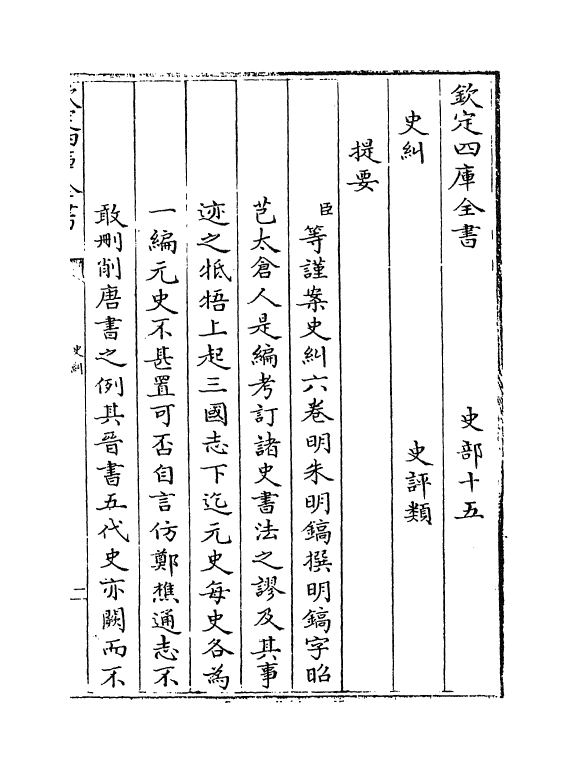 欽定四庫全書　史部十五
史糾　史評類
提要
臣等謹案史糾六卷明朱明鎬撰明鎬字昭
芑太倉人是編考訂諸史書法之謬及其事
迹之牴牾上起三國志下迄元史每史各為
一編元史不甚置可否自言仿鄭樵通志不
敢刪削唐書之例其晉書五代史亦闕而不
欽定四庫全書
史糾